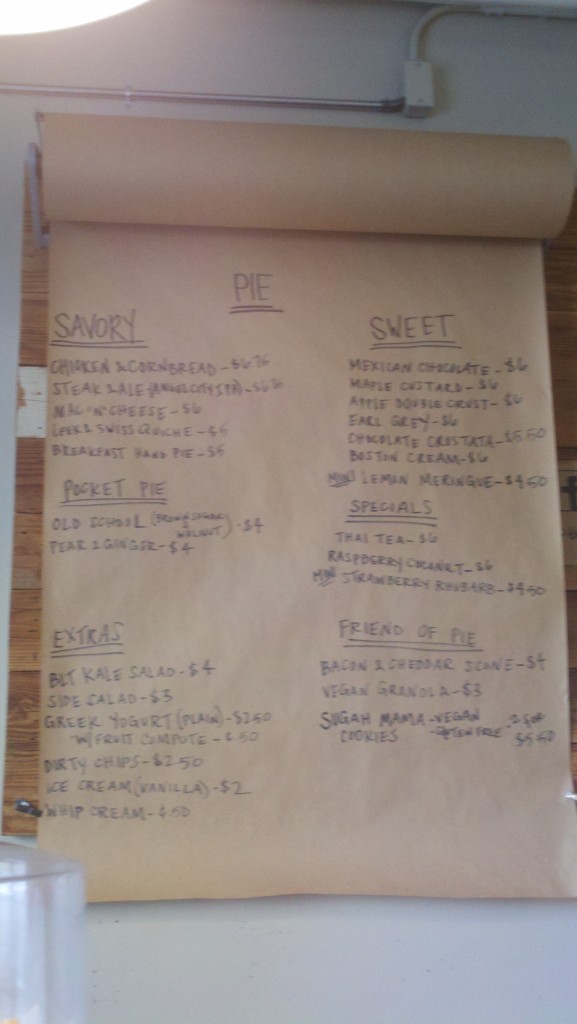 PIE
SAVORY
CHICKEN & CORNBREAD - $6.75
STEAK & ALE (ANGEL CITY IPA) - $6.75
MAC 'N' CHEESE - $6
LEEK & SWISS QUICHE - $5
BREAKFAST HAND PIE - $5
POCKET PIE
OLD SCHOOL (BROWN SUGAR & WALNUT) - $4
PEAR & GINGER - $4
EXTRAS
BLT KALE SALAD - $4
SIDE SALAD - $3
GREEK YOGURT (PLAIN) - $2.50
W/ FRUIT COMPOTE - $.50
DIRTY CHIPS - $2.50
ICE CREAM (VANILLA) - $2
WHIP CREAM - $.50
SWEET
MEXICAN CHOCOLATE - $6
MAPLE CUSTARD - $6
APPLE DOUBLE CRUST - $6
EARL GREY - $6
CHOCOLATE CROSTATA - $5.50
BOSTON CREAM - $6
MINI LEMON MERINGUE - $4.50
SPECIALS
THAI TEA - $6
RASPBERRY COCONUT - $6
MINI STRAWBERRY RHUBARB - $4.50
FRIEND OF PIE
BACON & CHEDDAR SCONE - $4
VEGAN GRANOLA - $3
SUGAH MAMA - VEGAN 2 FOR
COOKIES - GLUTEN FREE $5.50